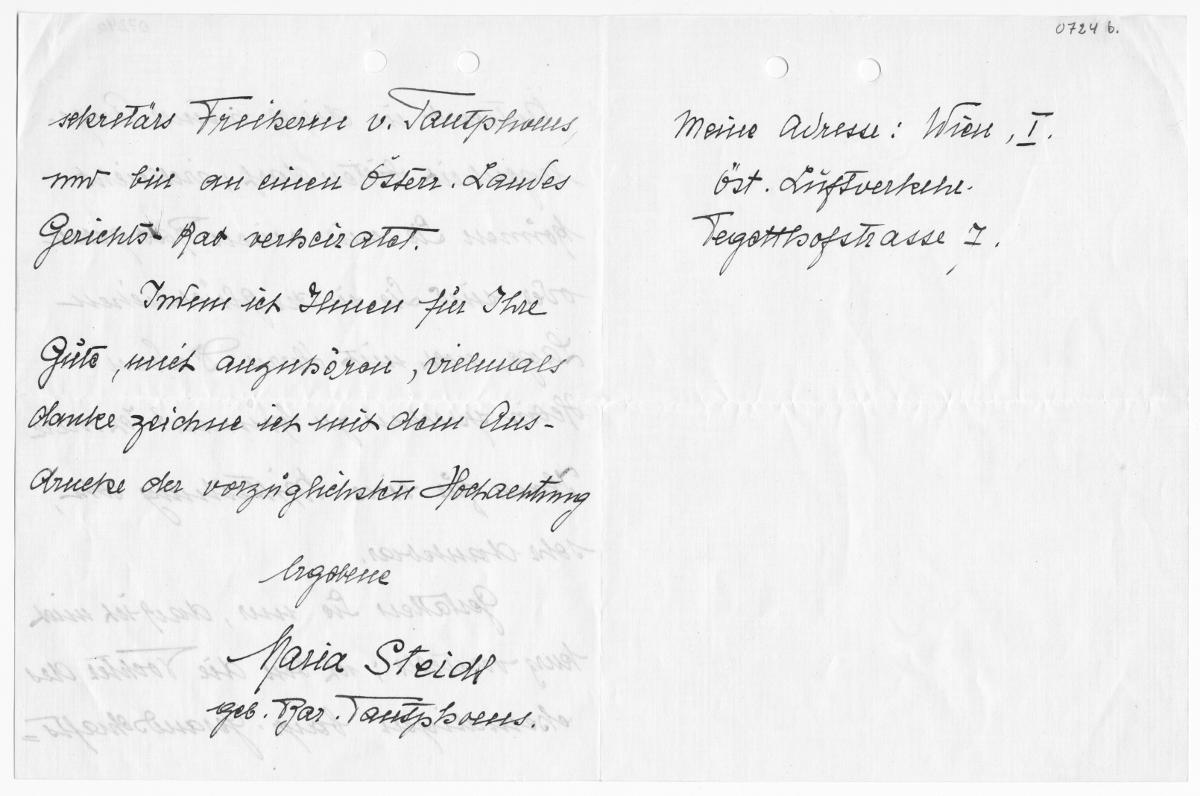 0724 b.
sekretärs Freiherrn v. Tautphoeus,
und bin an einen österr. Landes
Gerichts-Rat verheiratet.
Indem ich Ihnen für Ihre
Güte, mich anzuhören, vielmals
danke zeichne ich mit dem Aus-
drucke der vorzüglichsten Hochachtung
Ergebene
Maria Steidl
geb. Bar. Tautphoeus.
Meine Adresse: Wien, I.
Öst. Luftverkehr.
Tegetthofstrasse 7.